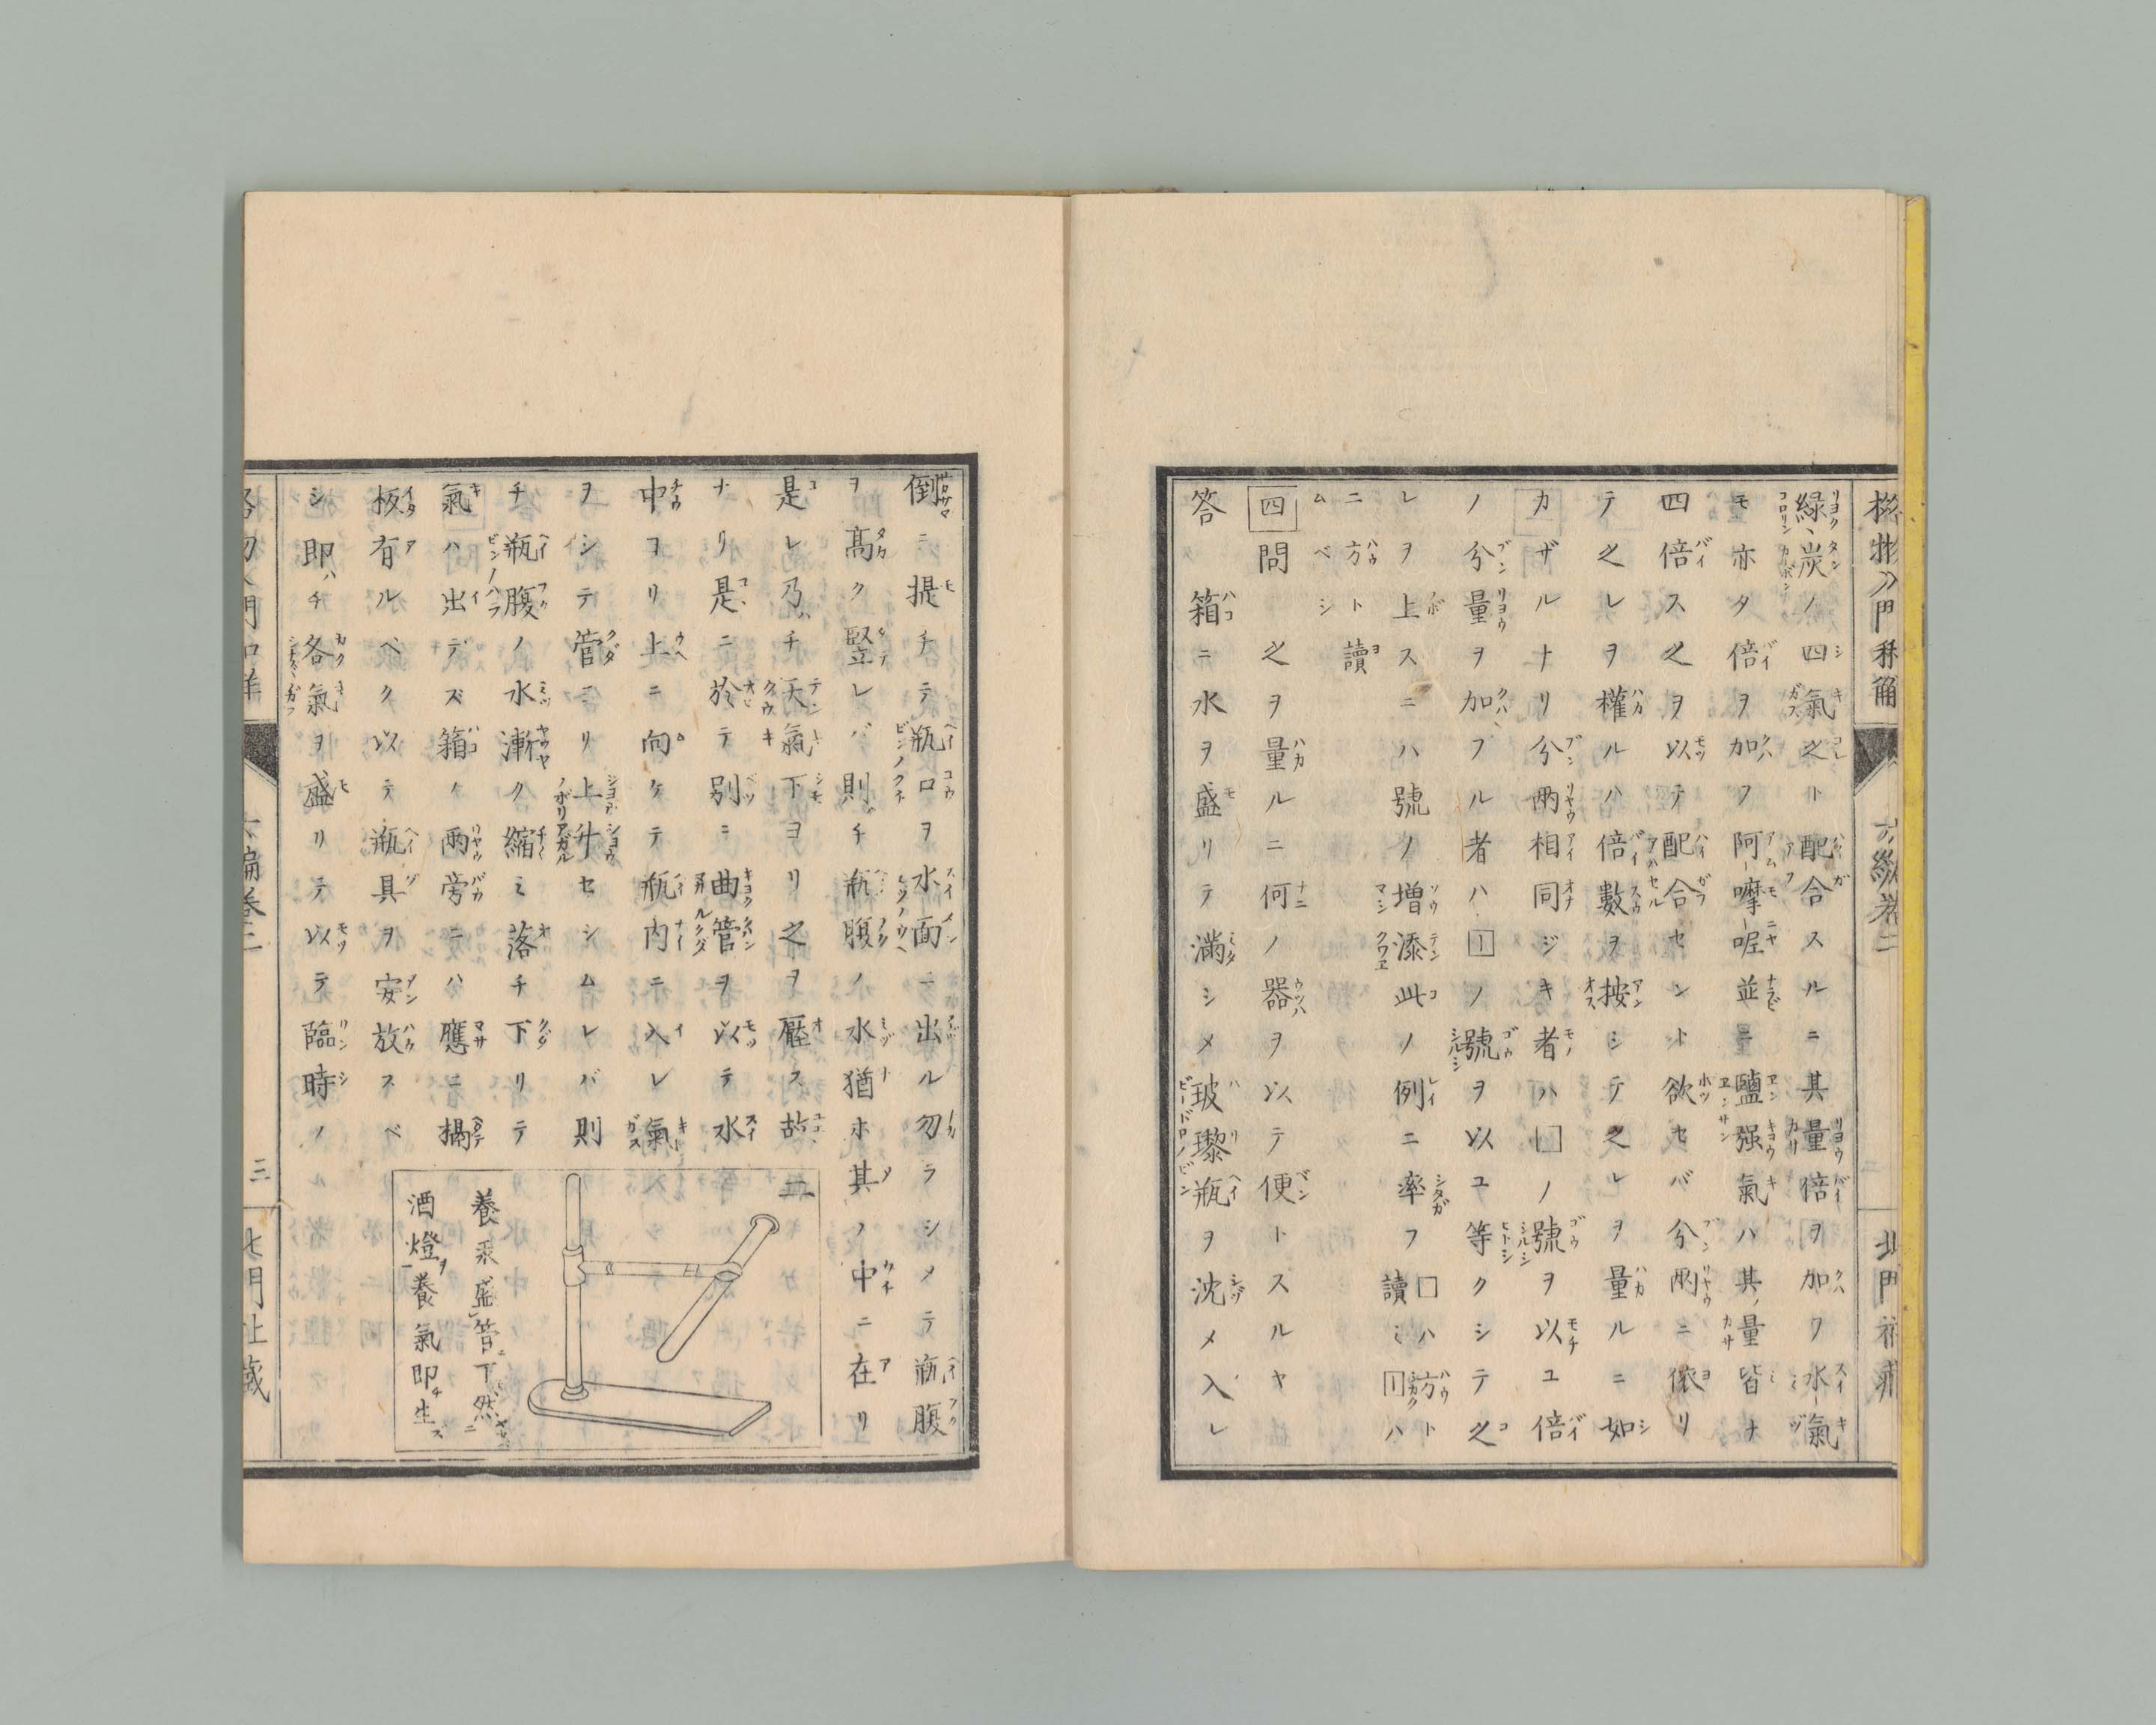 緑炭ノ四氣之ト配合スルニ其量倍ヲ加フ水氣
モ亦タ倍ヲ加フ阿嚤呢並ニ鹽强氣ハ其量皆ナ
四倍ス之ヲ以テ配合セント欲セバ分兩ニ依リ
テ之レヲ權ルハ倍數ヲ按シテ之レヲ量ルニ如
カザルナリ分兩相同ジキ者ハ囗ノ號ヲ以ユ倍
ノ分量ヲ加フル者ハノ號ヲ以ユ等クシテ之
レヲ上スニハ號ノ増添此ノ例ニ率フ囗ハ方ト讀ミハ
ニ方ト讀
ムベシ
四問 之ヲ量ルニ何ノ器ヲ以テ便トスルヤ
答 箱ニ水ヲ盛リテ滿シメ玻瓈瓶ヲ沈メ入レ
倒ニ提チテ瓶口ヲ水面ニ出ル勿ラシメテ瓶腹
ヲ高ク竪レバ則チ瓶腹ノ水猶ホ其ノ中ニ在リ
是レ乃チ天氣下ヨリ之ヲ壓ス故
ナリ是ニ於テ別ニ曲管ヲ以テ水
中ヨリ上ニ向ケテ瓶内ニ入レ氣
ヲシテ管ヨリ上升セシムレバ則
チ瓶腹ノ水漸ク縮ミ落チ下リテ
氣ハ出デズ箱ノ兩旁ニハ應ニ搨
板有ルベク以テ瓶具ヲ安放スベ
シ即ハチ各氣ヲ盛リテ以テ臨時ノ
三
養汞盛管下然
酒燈養氣即生